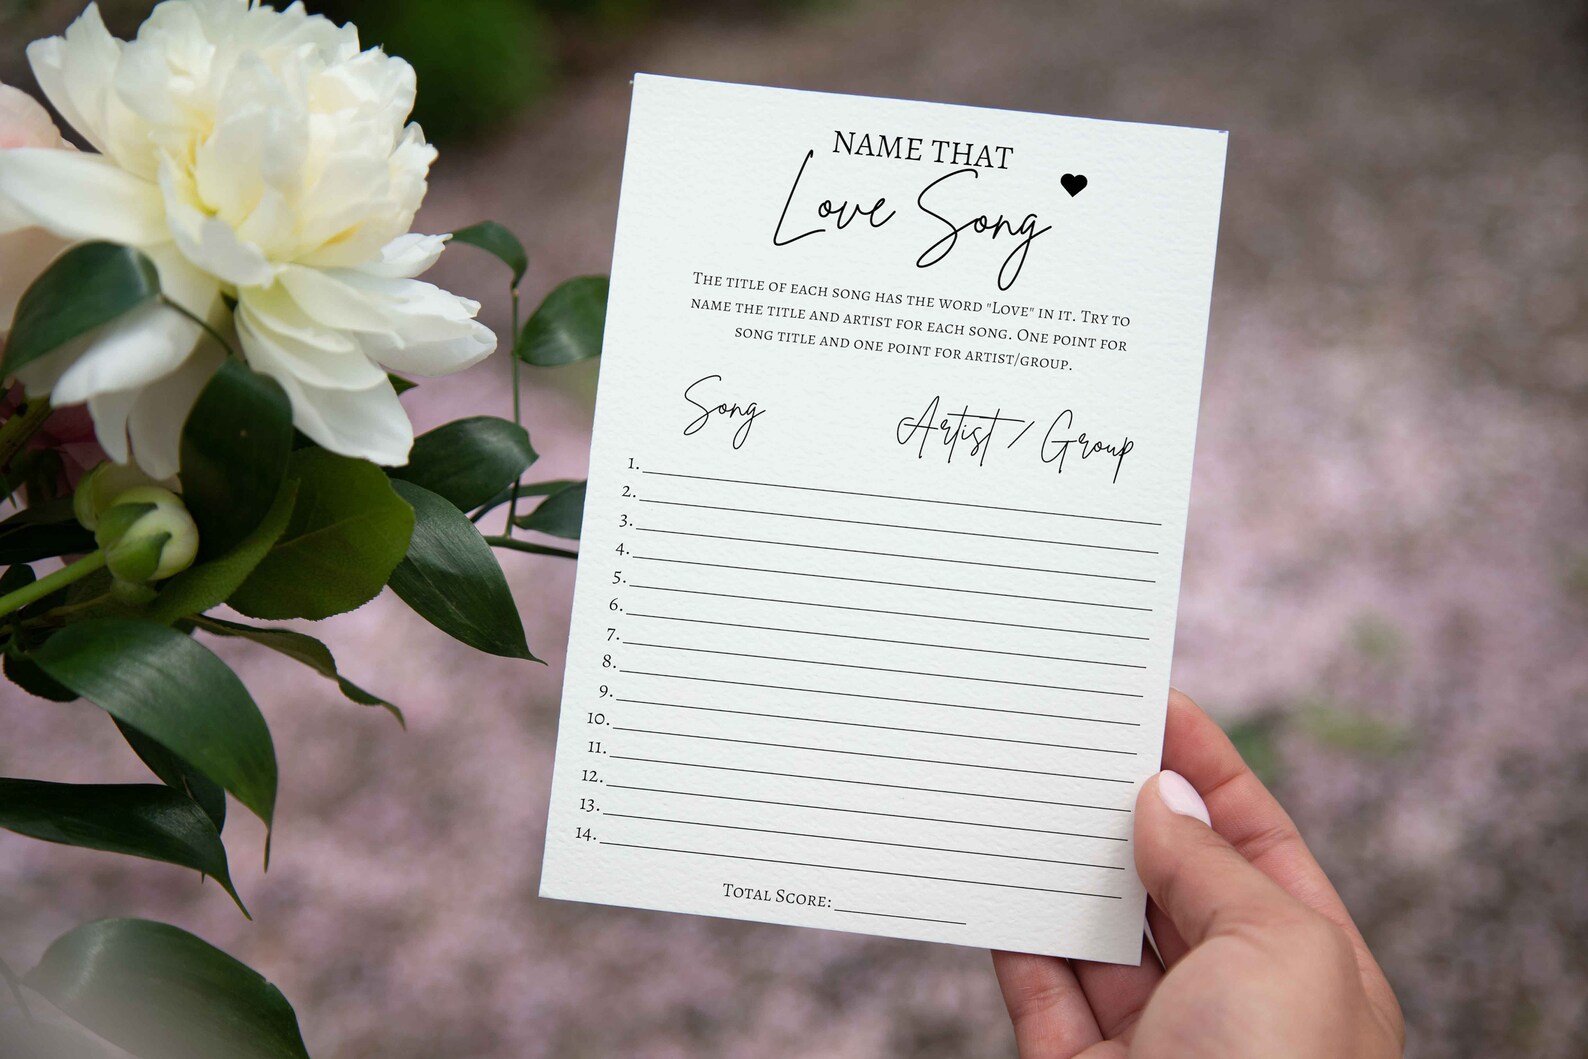 NAME THAT
Love Song
The title of each song has the word "Love" in it. Try to
name the title and artist for each song. One point for
song title and one point for artist/group.
Song Artist / Group
1.
2.
3.
4.
5.
6.
7.
8.
9.
10.
11.
12.
13.
14.
Total Score: